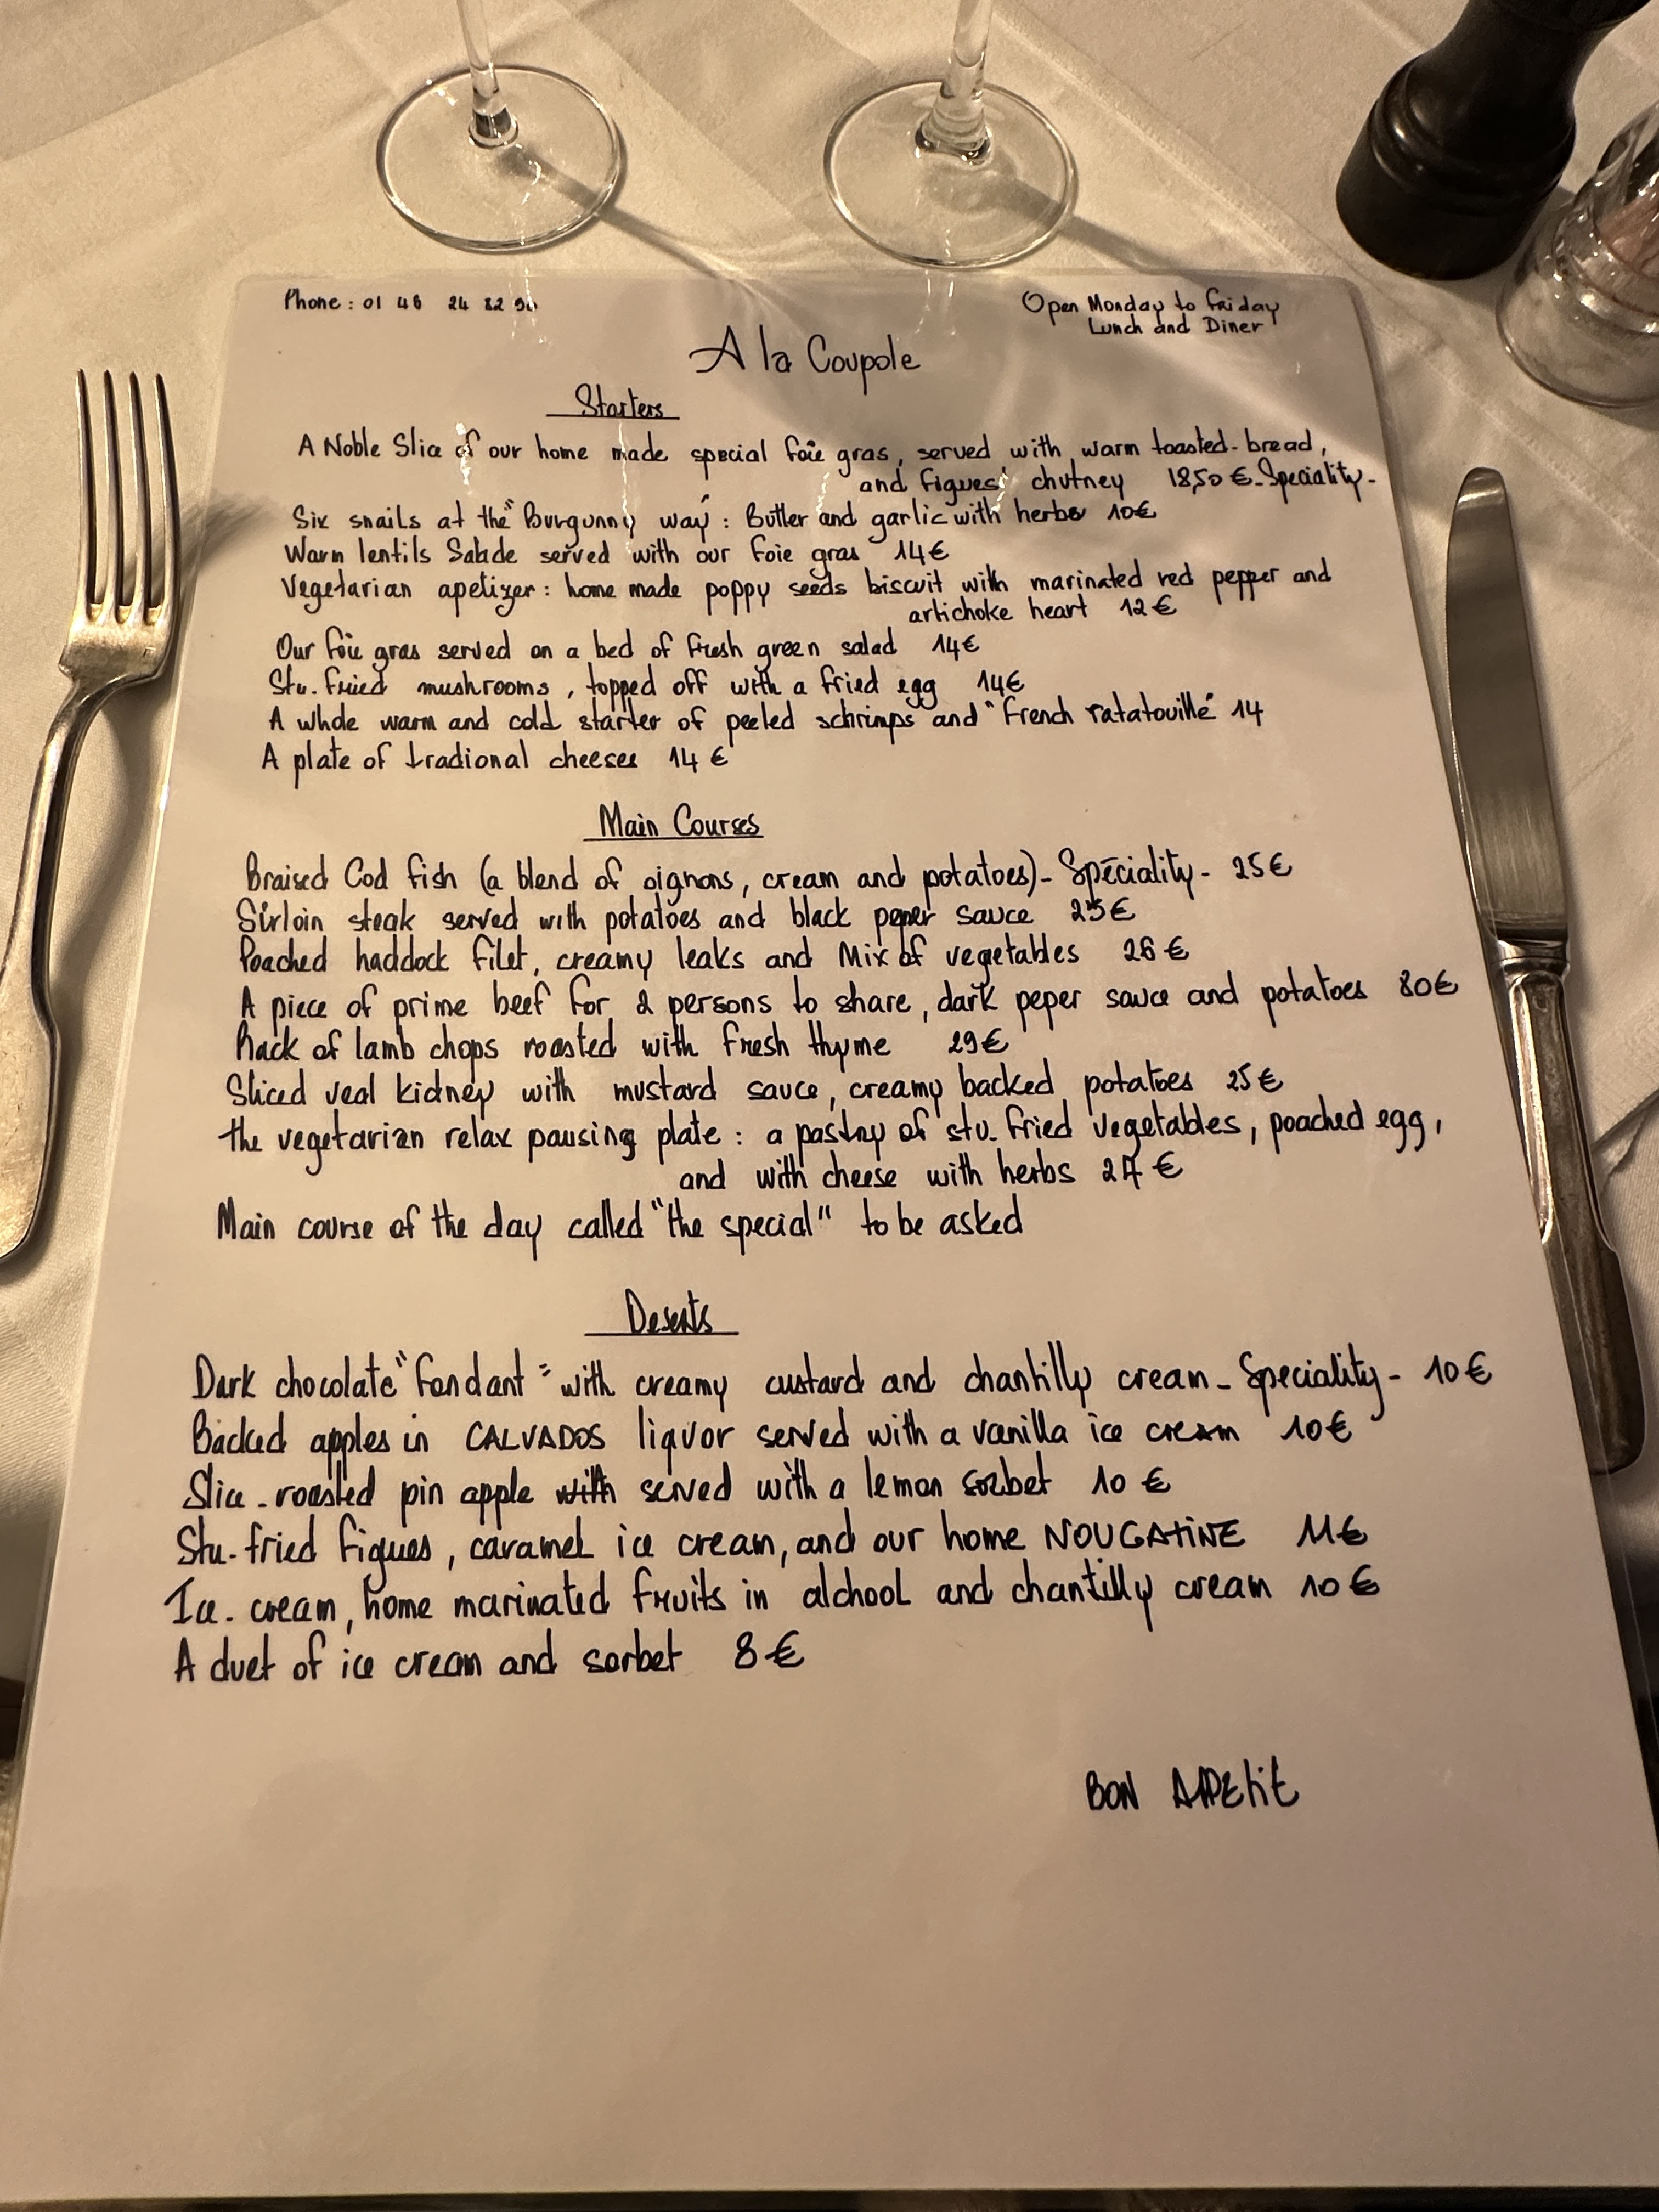 Phone : 01 46 24 82 90
Open Monday to Friday
Lunch and Diner
A la Coupole
Starters
A Noble Slice of our home made special foie gras, served with warm toasted-bread,
and figues' chutney 18,50 € - Speciality -
Six snails at the "Burgunny way" : Butter and garlic with herbs 10€
Warm lentils Salade served with our foie gras 14€
Vegetarian apetizer : home made poppy seeds biscuit with marinated red pepper and
artichoke heart 12€
Our foie gras served on a bed of fresh green salad 14€
Stu-fried mushrooms, topped off with a fried egg 14€
A whole warm and cold starter of peeled schrimps and "French ratatouille" 14
A plate of tradional cheeses 14 €
Main Courses
Braised Cod fish (a blend of oignons, cream and potatoes) - Spéciality - 25€
Sirloin steak served with potatoes and black peper sauce 25€
Poached haddock filet, creamy leaks and Mix of vegetables 26 €
A piece of prime beef for 2 persons to share, dark peper sauce and potatoes 80€
Rack of lamb chops roasted with fresh thyme 29€
Sliced veal kidney with mustard sauce, creamy backed potatoes 25€
the vegetarian relax pausing plate : a pastry of stu-fried vegetables, poached egg,
and with cheese with herbs 27 €
Main course of the day called "the special" to be asked
Deserts
Dark chocolate "fondant" with creamy custard and chantilly cream - Speciality - 10€
Backed apples in CALVADOS liquor served with a vanilla ice cream 10€
Slice-roasted pin apple with served with a lemon sorbet 10 €
Stu-fried figues, caramel ice cream, and our home NOUGATINE 11€
Ice-cream, home marinated fruits in alchool and chantilly cream 10€
A duet of ice cream and sorbet 8€
BON APPEtit